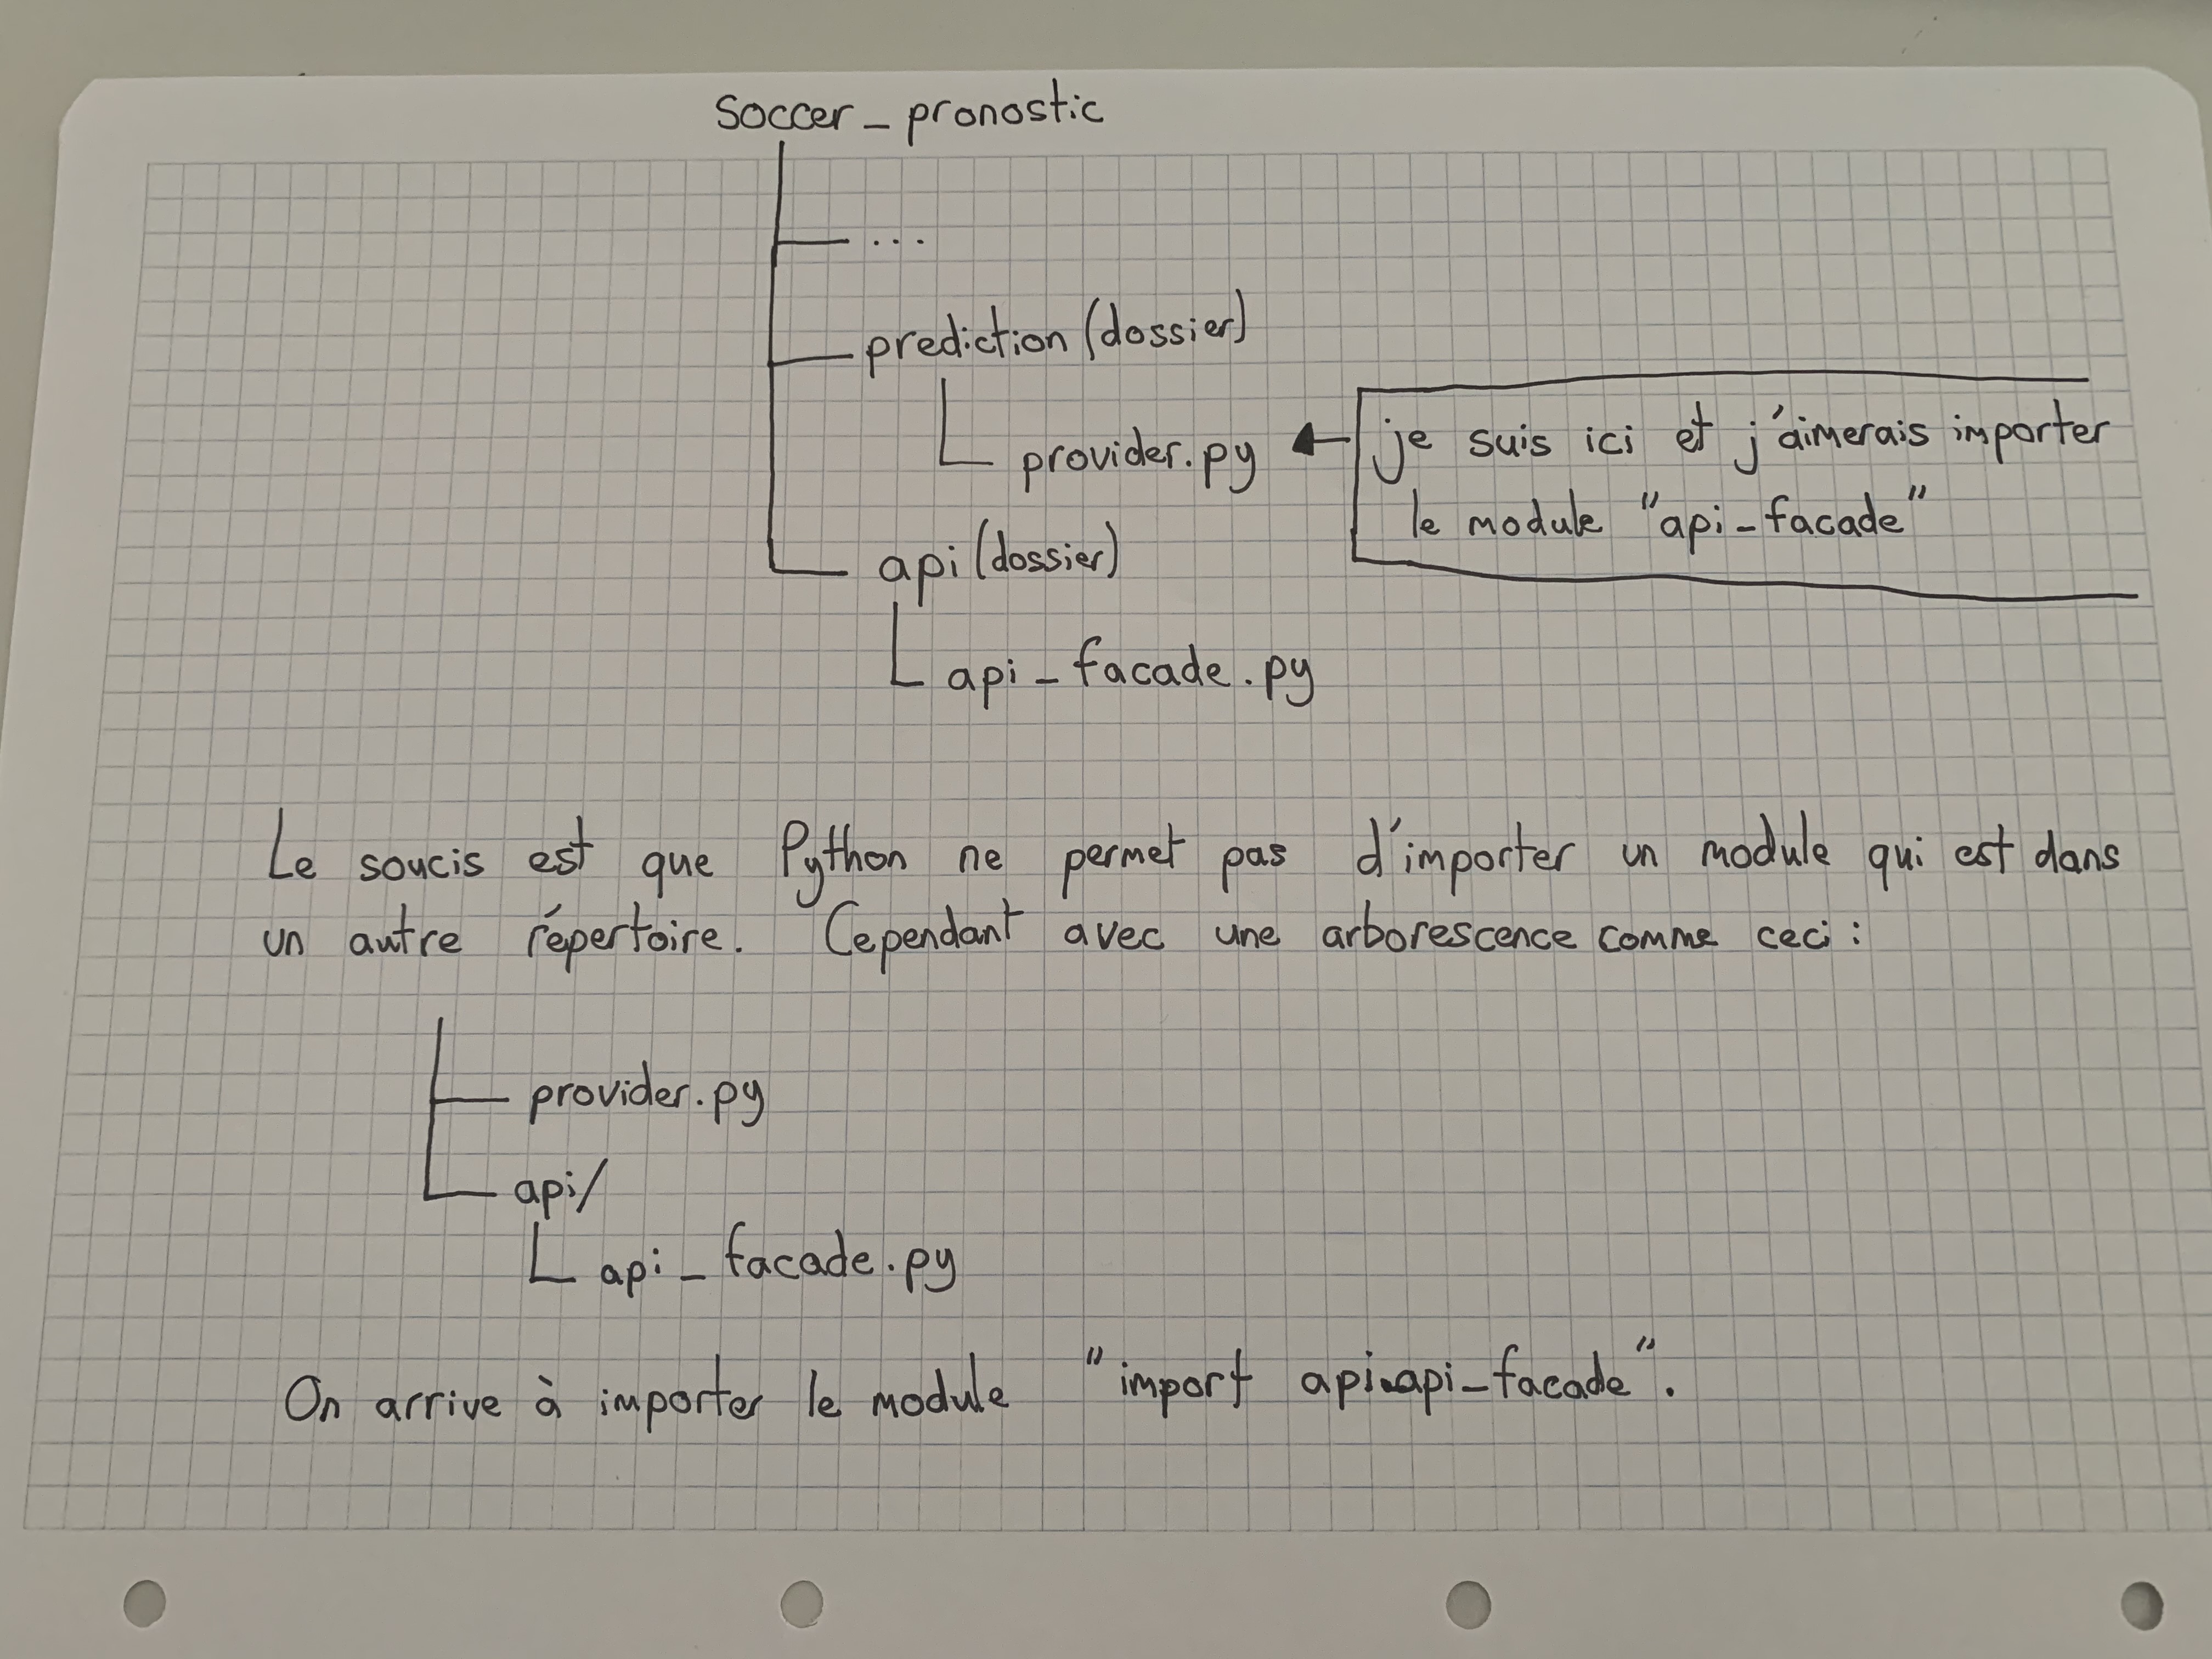 soccer_pronostic
...
prediction (dossier)
provider.py
je suis ici et j'aimerais importer
le module "api-facade"
api (dossier)
api_facade.py
Le soucis est que Python ne permet pas d'importer un module qui est dans
un autre répertoire. Cependant avec une arborescence comme ceci :
provider.py
api/
api_facade.py
On arrive à importer le module "import api.api-facade".